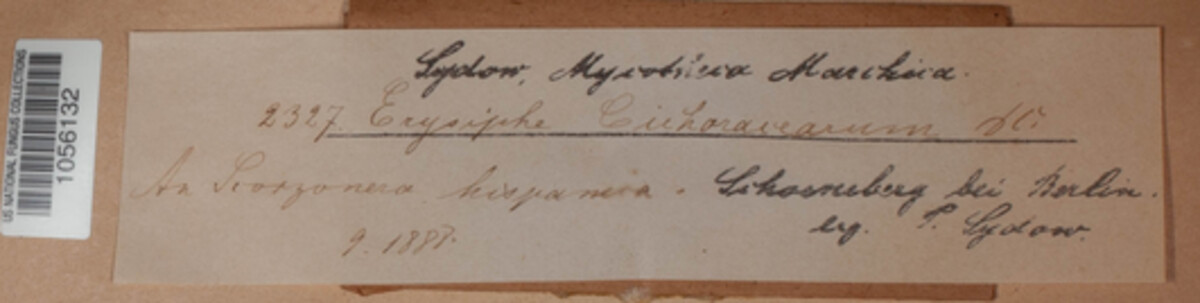 US NATIONAL FUNGUS COLLECTIONS
1056132
Sydow, Mycotheca Marchica.
2327. Erysiphe Cichoracearum DC.
An Scorzonera hispanica. Schoeneberg bei Berlin.
9. 1888. leg. P. Sydow.